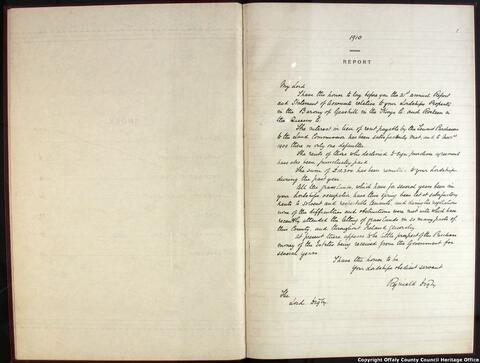 1
1910
REPORT
My Lord
I have the honor to lay before you the annual Report
and Statement of Accounts relative to your Lordships Property
in the Barony of Geashill in the Kings Co. and
in the Queens Co.
The interest in lieu of rent payable by the Tenant Purchasers
to the Land Commission has been satisfactorily met, and
there is only one defaulter.
The rents of those who declined to sign purchase agreements
have also been punctually paid.
The sum of has been remitted to your Lordship
during the past year.
All the grass lands, which have for several years been in
your Lordships occupation have this Spring been let at satisfactory
rents to solvent and respectable tenants, and during the negotiations
none of the difficulties and obstructions were met with which have
recently attended the letting of grass lands in so many parts of
this County, and throughout Ireland generally.
At present there appears to be little prospect of the Purchase
money of the Estates being received from the Government for
several years.
I have the honor to be
Your Lordships obedient servant
Reginald Digby
The
Lord Digby
Copyright Offaly County Council Heritage Office